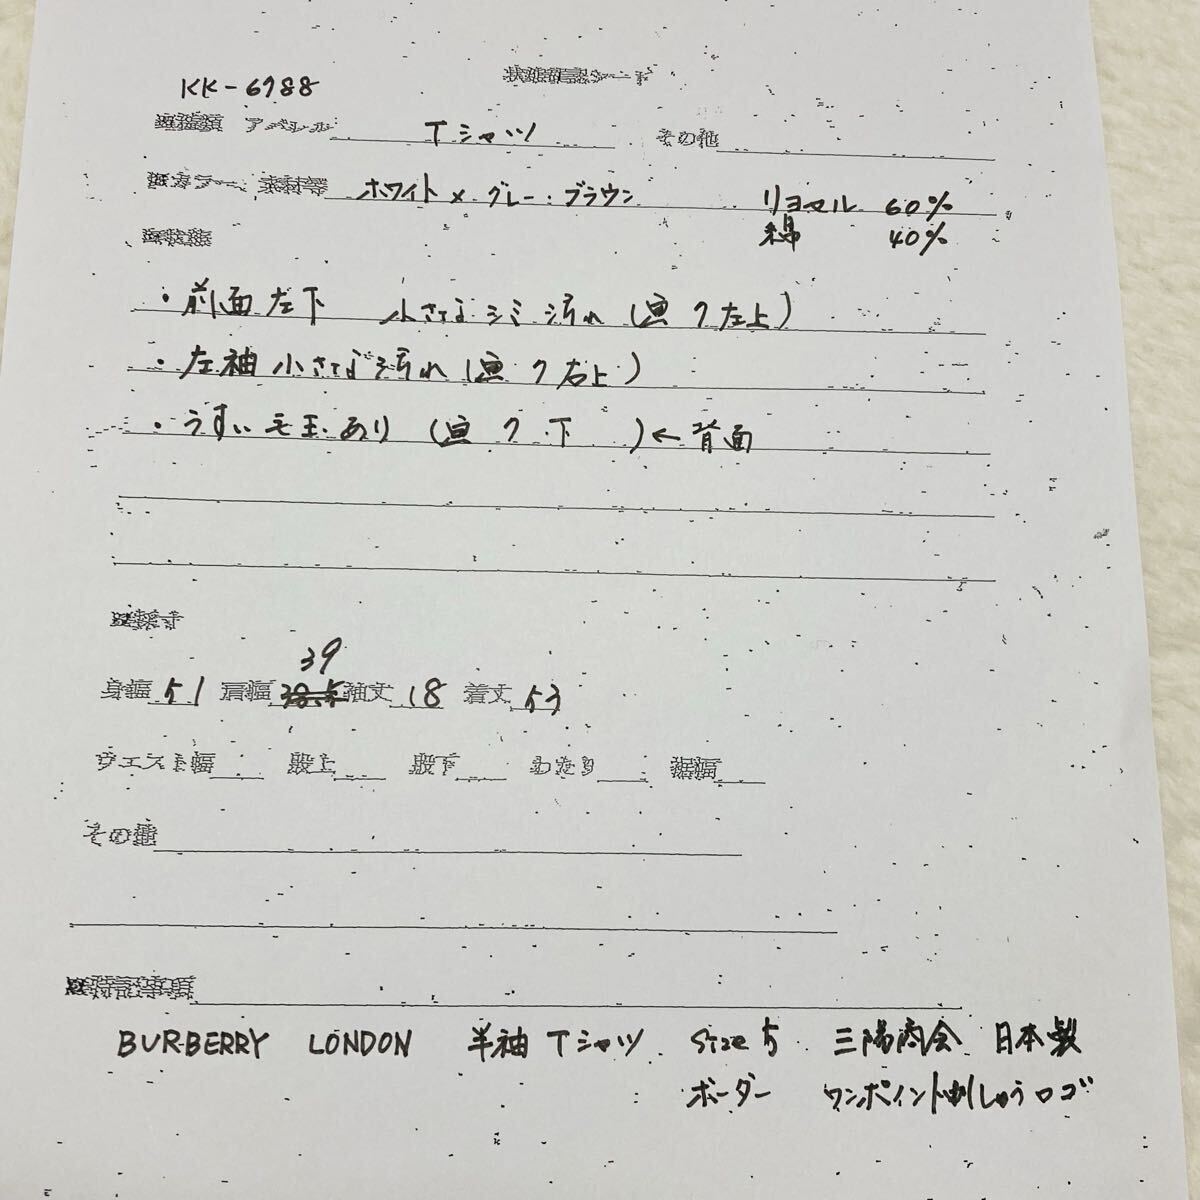 状態確認シート
KK-6988
■種類 アパレル Tシャツ その他
■カラー、素材等 ホワイト×グレー:ブラウン リヨセル 60%
綿 40%
■状態
・前面左下 小さなシミ汚れ(画 7左上)
・左袖小さな汚れ(画 7右上)
・うすい毛玉あり (画 7 下 )←背面
39
身幅 51 肩幅 袖丈 18 着丈 53
ウエスト幅 股上 股下 わたり 裾幅
その他
■特記事項
BURBERRY LONDON 半袖 Tシャツ size 5 三陽商会 日本製
ボーダー ワンポイント刺しゅうロゴ